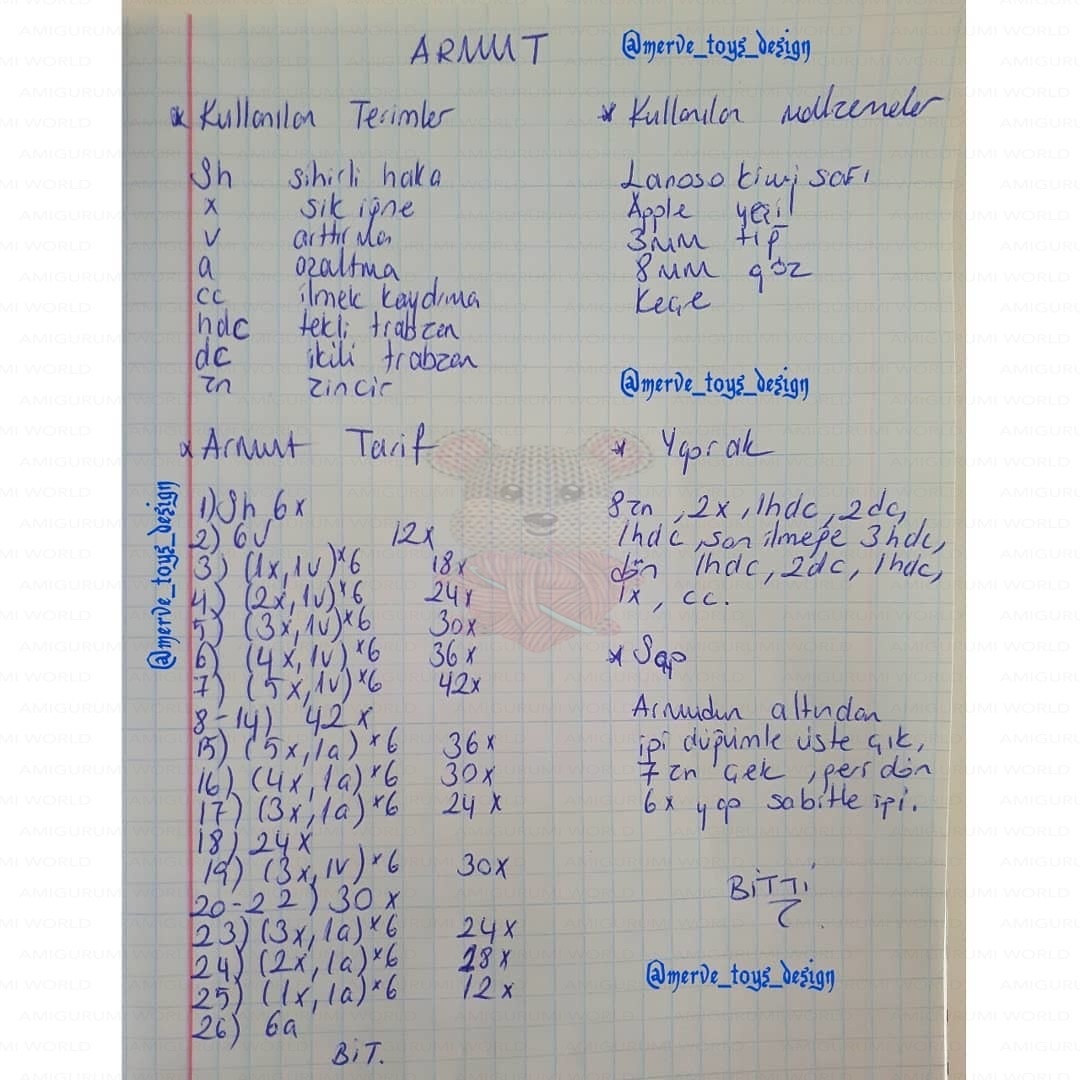 ARMUT
@merve_toys_design
* Kullanılan Terimler
Sh sihirli halka
x sık iğne
v arttırma
a azaltma
cc ilmek kaydırma
hdc tekli trabzan
dc ikili trabzan
zn zincir
* Kullanılan malzemeler
Lanoso kiwi safi
Apple yeşil
3MM tıp
8MM göz
Keçe
@merve_toys_design
* Armut Tarif
1) Sh 6x
2) 6v 12x
3) (1x,1v)*6 18x
4) (2x,1v)*6 24x
5) (3x,1v)*6 30x
6) (4x,1v)*6 36x
7) (5x,1v)*6 42x
8-14) 42x
15) (5x,1a)*6 36x
16) (4x,1a)*6 30x
17) (3x,1a)*6 24x
18) 24x
19) (3x,1v)*6 30x
20-22) 30x
23) (3x,1a)*6 24x
24) (2x,1a)*6 18x
25) (1x,1a)*6 12x
26) 6a
BİT.
@merve_toys_design
* Yaprak
8zn, 2x, 1hdc, 2dc,
1hdc, son ilmeğe 3hdc,
dön 1hdc, 2dc, 1hdc,
1x, cc.
* Sap
Armudun altından
ipi düğümle üste çık,
7 zn çek, geri dön
6x yap sabitle ipi.
BİTTİ
@merve_toys_design
AMIGURUMI WORLD